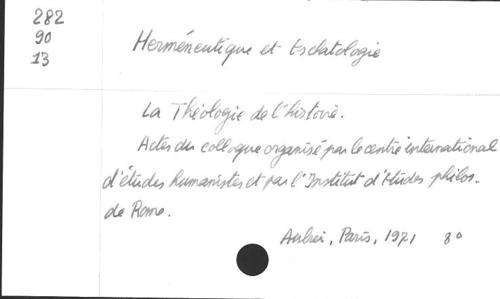 282
90
13
Herméneutique et Eschatologie
La Théologie de l'histoire.
Actes du colloque organisé par le centre international
d'études humanistes et par l'Institut d'études philos.
de Rome.
Aubier, Paris, 1971 8°